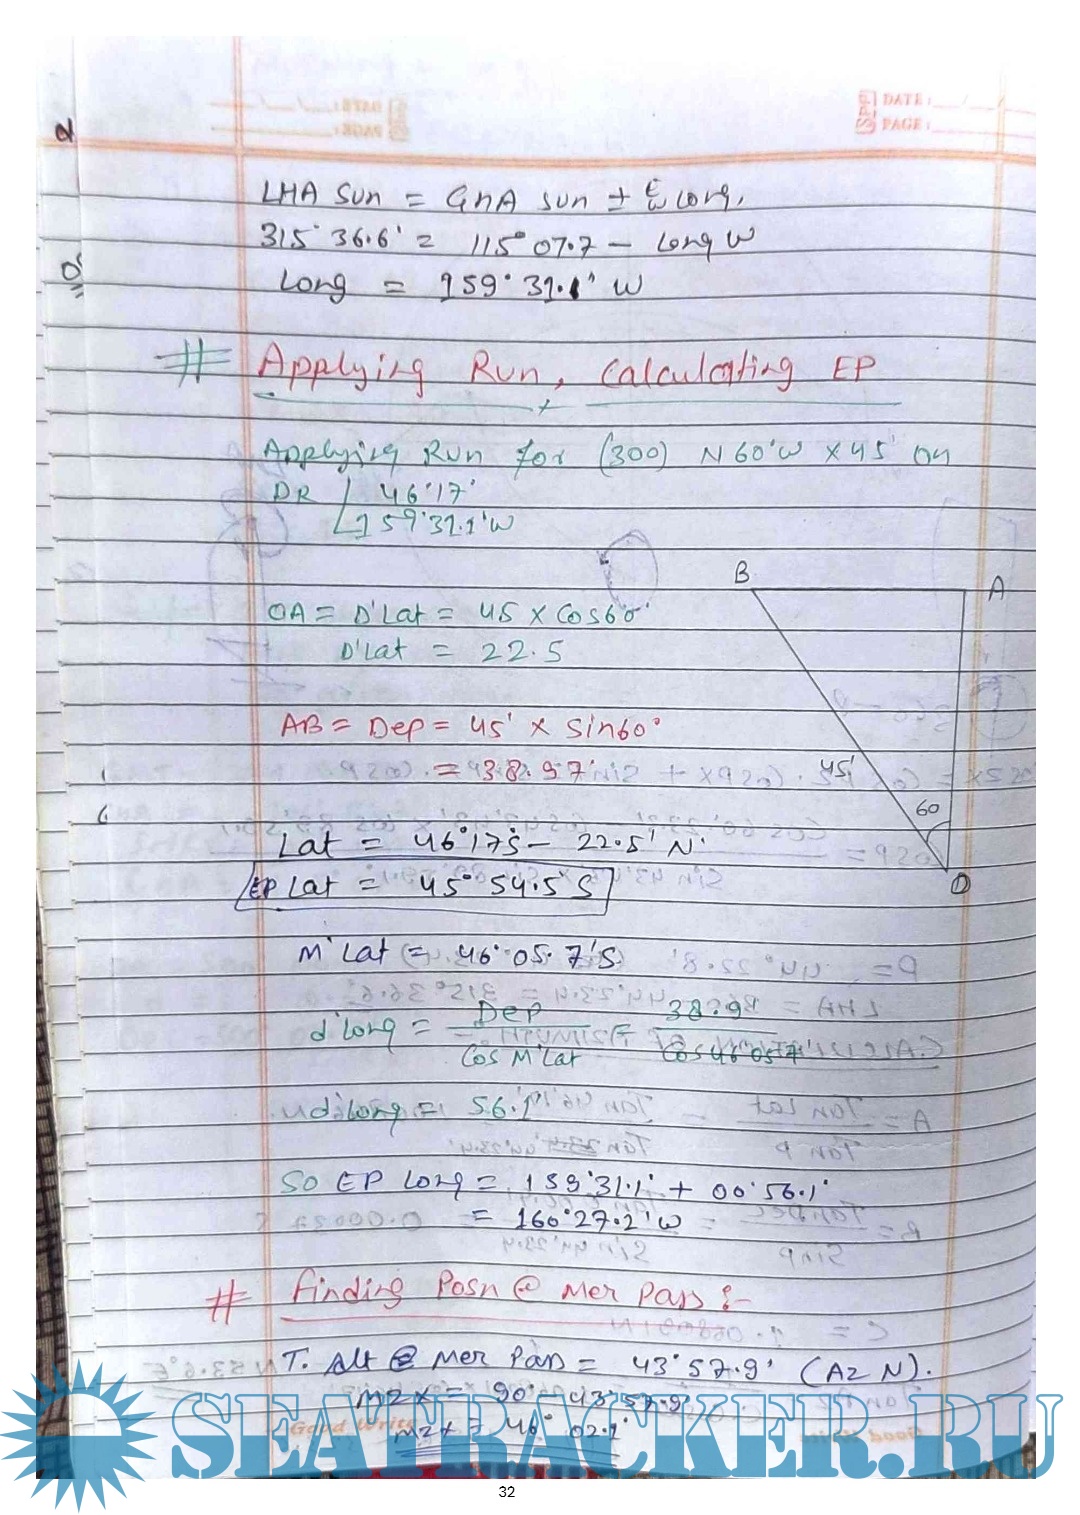 DATE:
PAGE:
LHA Sun = GHA sun ± E/W Long.
315° 36.6' = 115° 07.7 - Long W
Long = 159° 31.1' W
# Applying Run, Calculating EP
Applying Run for (300) N 60° W x 45' on
DR 46°17'
159°31.1'W
B
A
OA = D'Lat = 45 x Cos60°
D'Lat = 22.5
AB = Dep = 45' x Sin60°
= 38.97'
45'
60
O
Lat = 46°17'S - 22.5' N
EP Lat = 45° 54.5 S
M'Lat = 46° 05.7'S
d'long = Dep 38.9
Cos M'Lat Cos 46° 05.7'
d'long = 56.1'
So EP Long = 159°31.1' + 00°56.1'
= 160°27.2' W
# Finding Posn @ Mer Pass :-
T. Alt @ Mer Pass = 43° 57.9' (Az N).
MZX = 90° - 43° 57.9'
MZX = 46° 02.1'
Good Write
SEATRACKER.RU
32